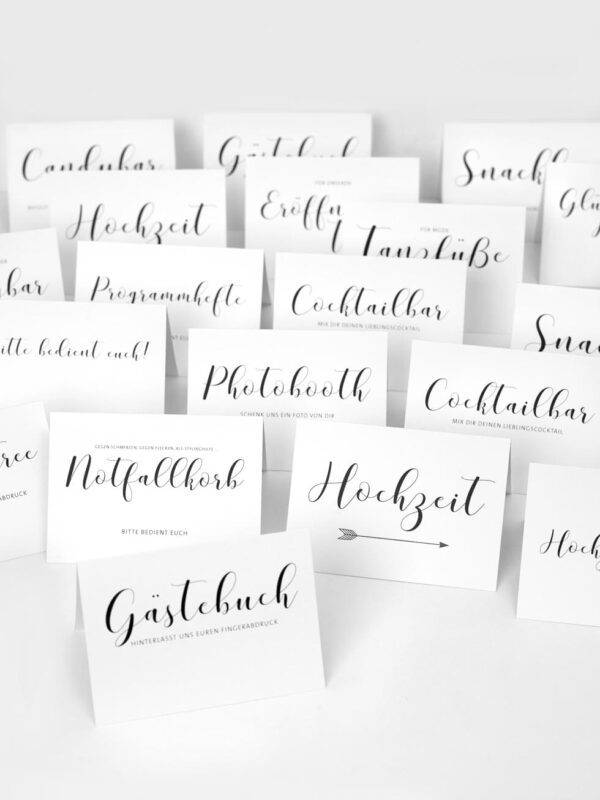 Candybar
Gästebuch
Hochzeit
FÜR UNSEREN
FÜR MÜDE
Tanzfüße
Programmhefte
Cocktailbar
MIX DIR DEINEN LIEBLINGSCOCKTAIL
bedient euch!
Photobooth
SCHENK UNS EIN FOTO VON DIR
Cocktailbar
MIX DIR DEINEN LIEBLINGSCOCKTAIL
GEGEN SCHMERZEN, GEGEN FLECKEN, ALS STYLINGHILFE ...
Notfallkorb
BITTE BEDIENT EUCH
Hochzeit
Gästebuch
HINTERLASST UNS EUREN FINGERABDRUCK